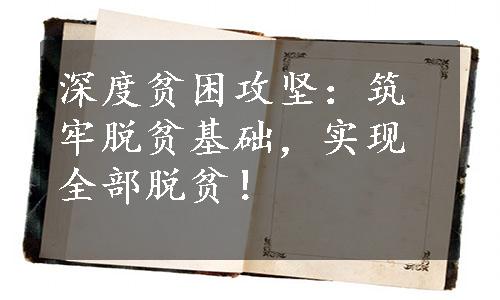 深度贫困攻坚：筑
牢脱贫基础，实现
全部脱贫！